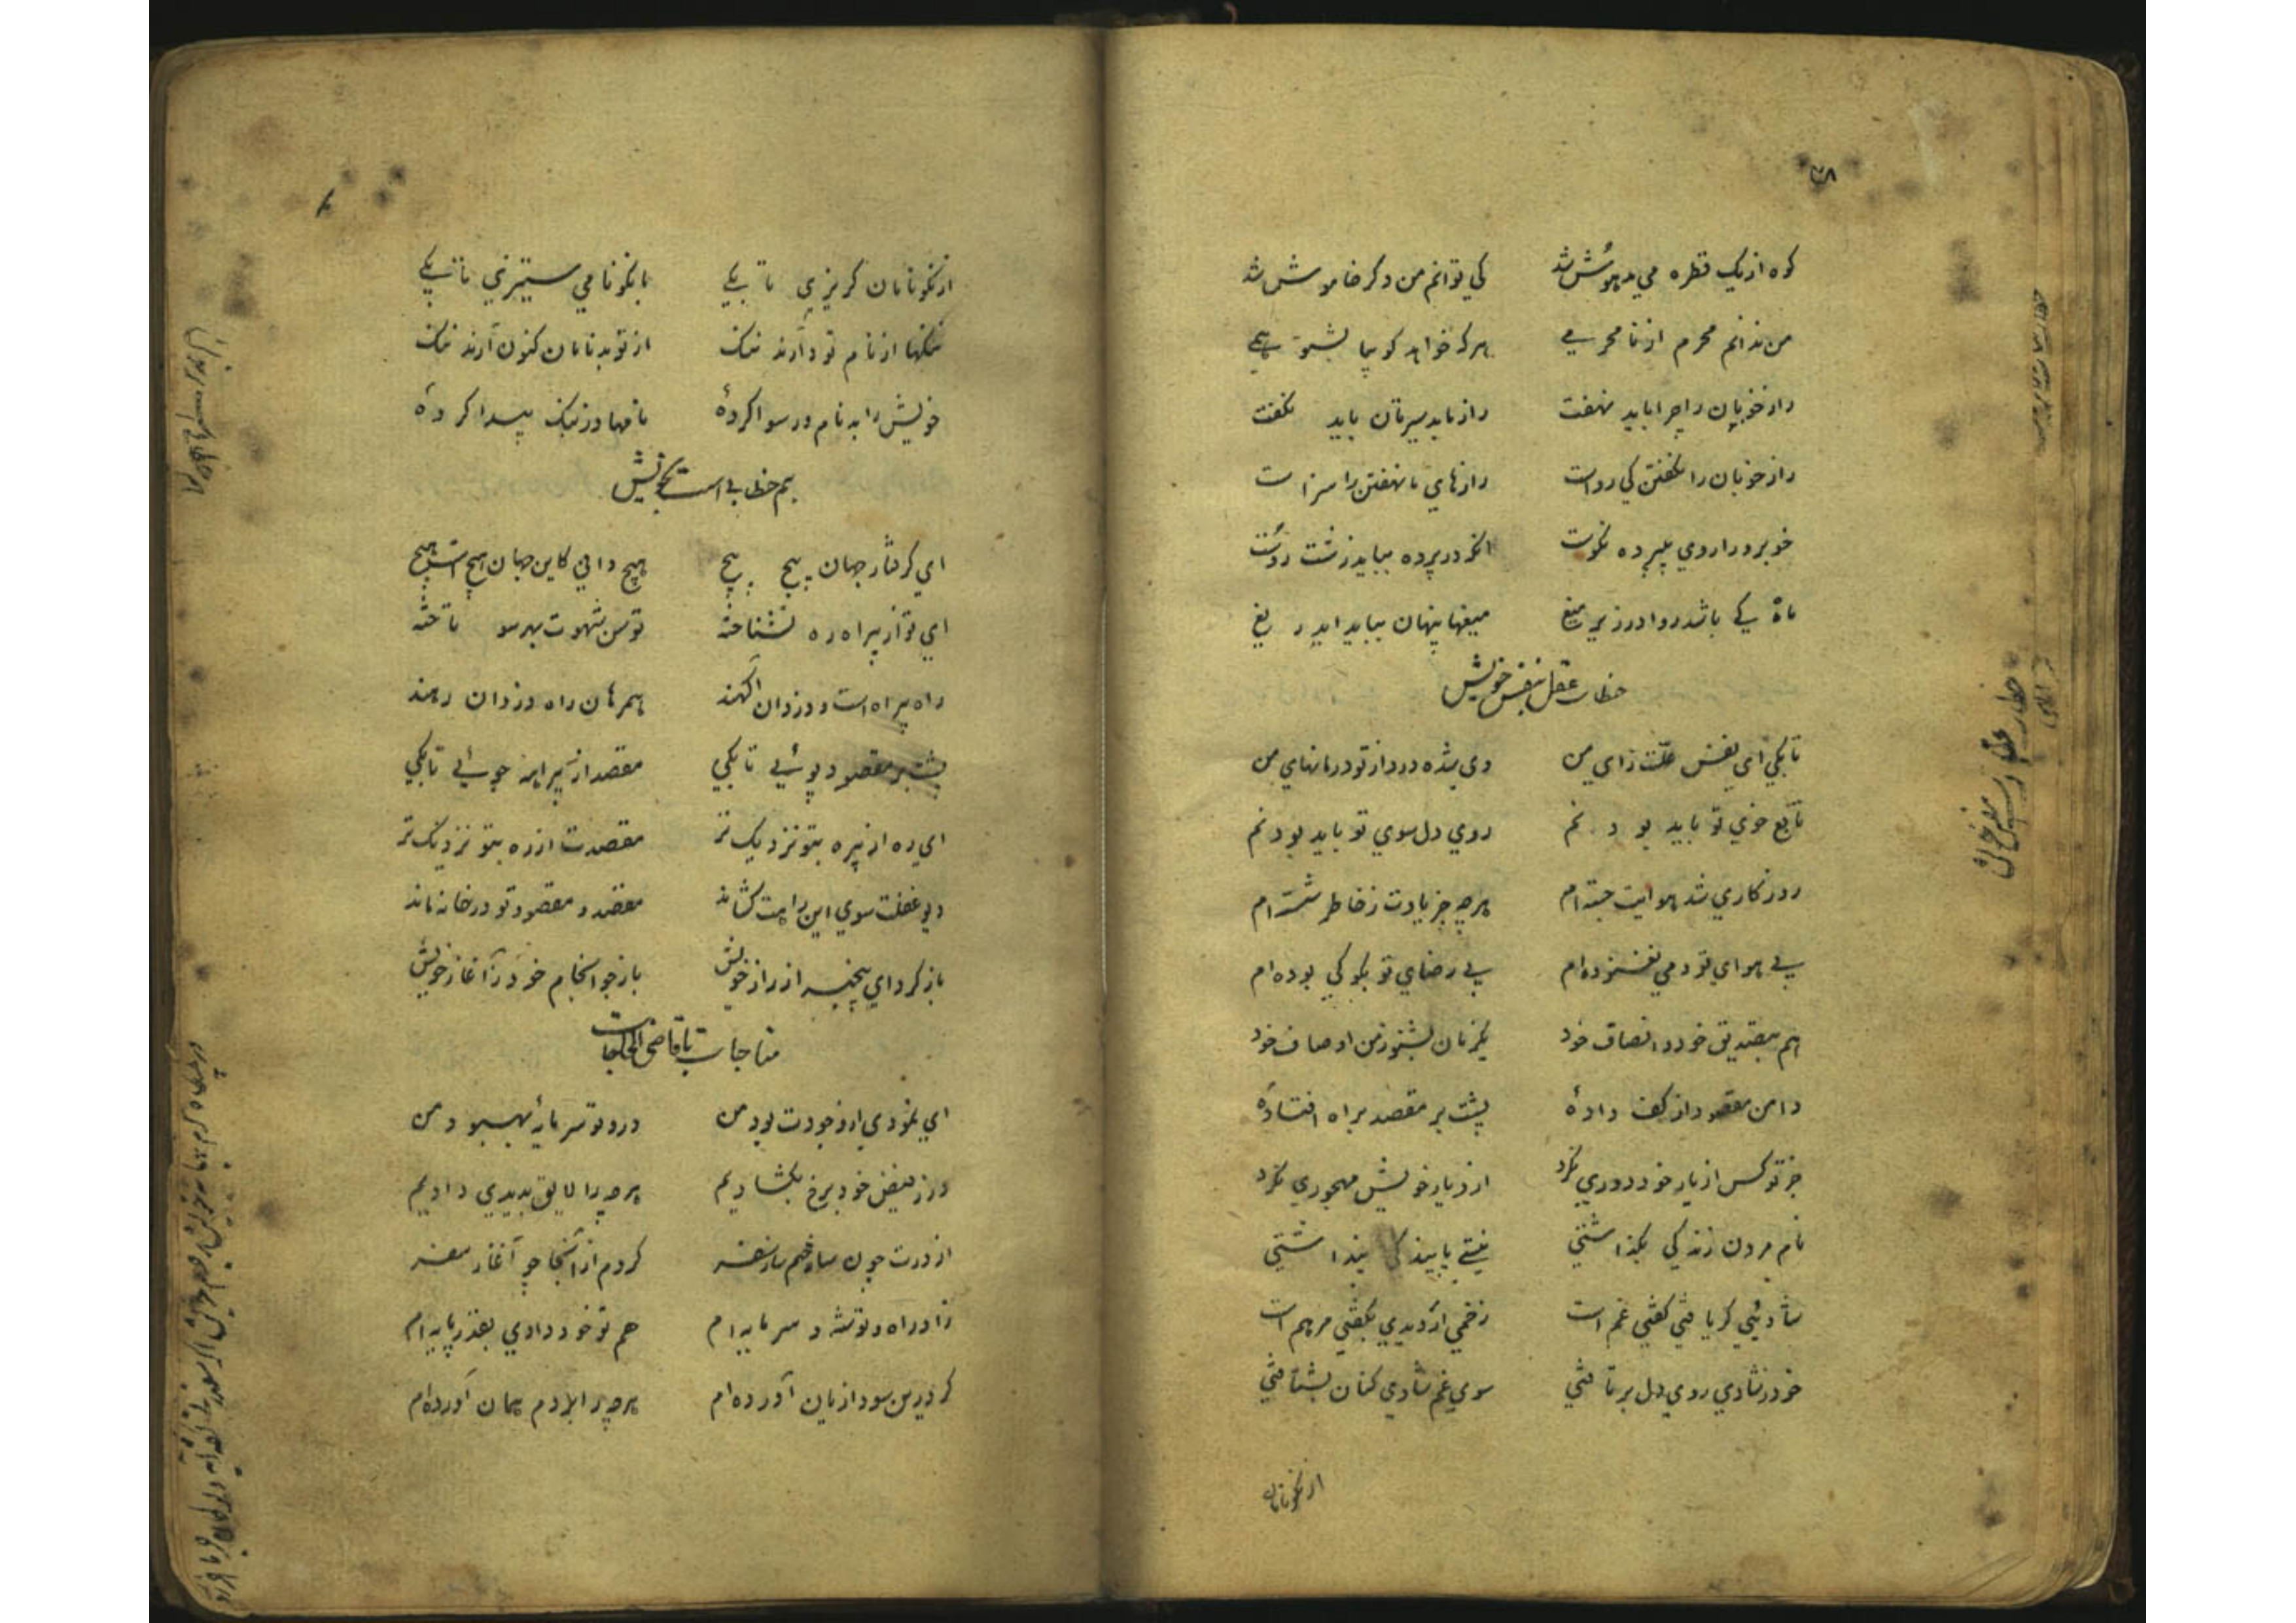 ۳۸
کوه از یک قطره می مدهوش شد کی توانم من دگر خاموش شد
من ندانم محرم از نامحرمی هر که خواهد کو بیا بشنو همی
راز خوبان را چرا باید نهفت راز باید سیرتان باید نگفت
راز خوبان را نگفتن کی رواست رازهای ما نهفتن را سزاست
خوبرو را روی بی پرده نکوست انکه در پرده بباید زشت روست
ماه کی باشد روا در زیر میغ میغها پنهان بباید ای دریغ
خطاب عقل بنفس خویش
تا بکی ای نفس علت زای من وی شده درد از تو درمانهای من
تابع خوی تو باید بودنم روی دل سوی تو باید بودنم
روزگاری شد هوایت جسته ام هرچه جز یادت ز خاطر شسته ام
بی هوای تو دمی نغنوده ام بی رضای تو بکو کی بوده ام
هم بتصدیق خود و انصاف خود یکزمان بشنو ز من اوصاف خود
دامن مقصود از کف دادهٔ پشت بر مقصد براه افتادهٔ
جز تو کس از یار خود دوری نکرد از دیار خویش مهجوری نکرد
نام مردن زندگی بگذاشتی نیستی پایندگی پنداشتی
شادئی گر یافتی گفتی غم است زخمی ار دیدی بگفتی مرهم است
خود ز شادی روی دل برتافتی سوی غم شادی کنان بشتافتی
از نکونامان
خطاب عقل بنفس خویش
از نکونامان گریزی تا بکی با نکونامی ستیزی تا بکی
ننگها از نام تو دارند ننگ از تو بدنامان کنون آرند ننگ
خویش را بدنام و رسوا کردهٔ نامها در ننگ پیدا کردهٔ
هم خطابی است بخویش
ای گرفتار جهان پیچ پیچ هیچ دانی کاین جهان هیچ است هیچ
ای تو از بیراه ره نشناخته توسن شهوت بهر سو تاخته
راه بیراه است و دزدان اگهند همرهان راه دزدان رهند
پشت بر مقصود پوئی تا بکی مقصد از بیراهه جوئی تا بکی
ای ره از بیره بتو نزدیک تر مقصدت از ره بتو نزدیک تر
دیو غفلت سوی این راهت کشاند مقصد و مقصود تو در خانه ماند
باز گرد ای بیخبر از راز خویش بازجو انجام خود ز آغاز خویش
مناجات با قاضی الحاجات
ای نمودی از وجودت بود من درد تو سرمایهٔ بهبود من
در ز فیض خود برخ بگشادیم هرچه را لایق بدیدی دادیم
از درت چون ساختم ساز سفر کردم از آنجا چو آغاز سفر
زاد راه و توشه و سرمایه ام هم تو خود دادی بقدر پایه ام
گر درین سودا زیان آورده ام هرچه را بردم همان آورده ام